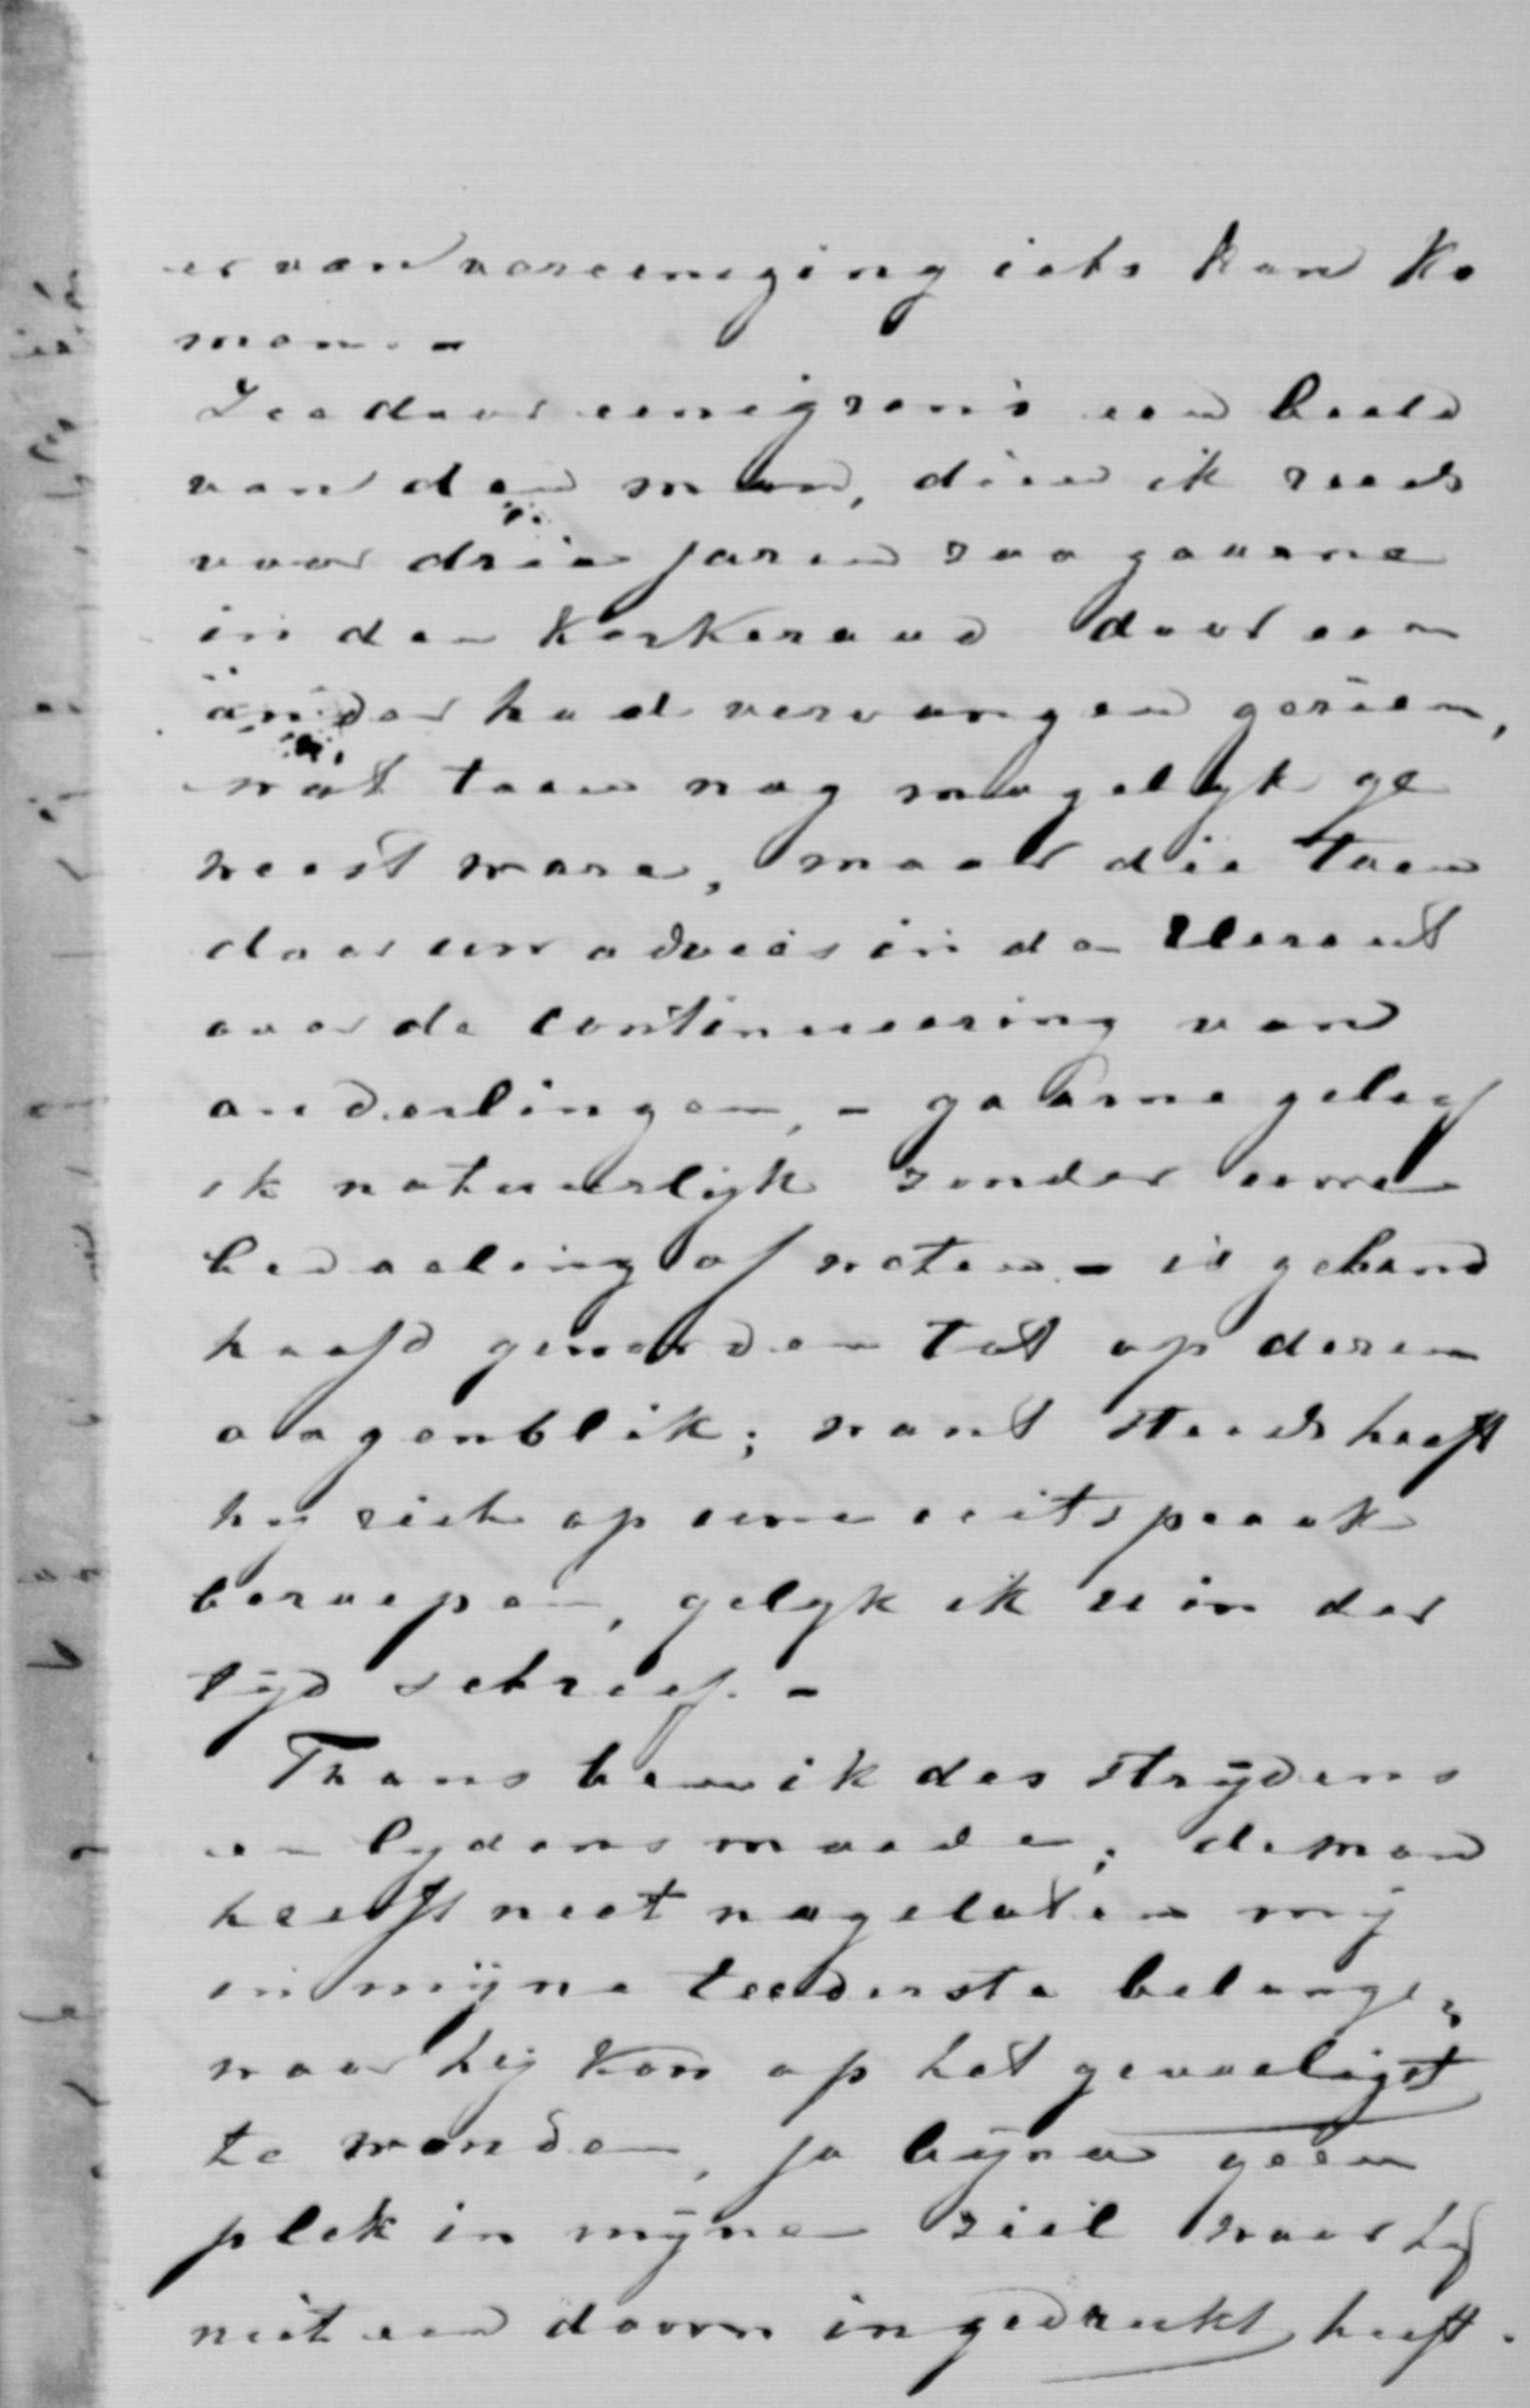 er van vereeniging iets kan ko
men. -
Zie daar eenigzins een beeld
van den man, dien ik reeds
voor drie jaren zoo gaarne
in den Kerkeraad door een
ander had vervangen gezien,
wat toen nog mogelyk ge
weest ware, maar die toen
door een advies in de Heraut
over de continueering van
ouderlingen, - gaarne geloof
ik natuurlijk zonder eene
bedoeling of weten - is gehand
haafd geworden tot op dezen
oogenblik; want steeds heeft
hy zich op eene uitspraak
beroepen, gelyk ik u in der
tyd schreef. -
Thans ben ik des strijdens
en lydens moede; de man
heeft niet nagelaten mij
in mijne teederste belangen
waar hij kon op het gevoeligst
te wonden, ja bijna geen
plek in mijne ziel waar hij
niet een doorn in gedrukt heeft.